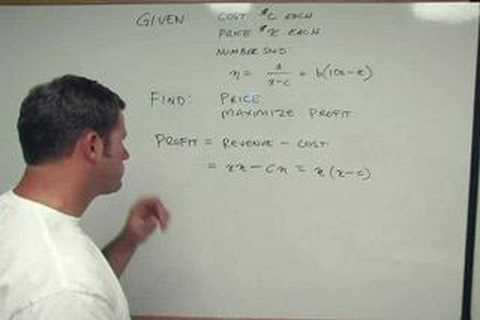 GIVEN COST $C EACH
PRICE $X EACH
NUMBER SOLD:
n = a/(x-c) + b(100-x)
FIND: PRICE
MAXIMIZE PROFIT
PROFIT = REVENUE - COST
= xn - cn = n(x-c)